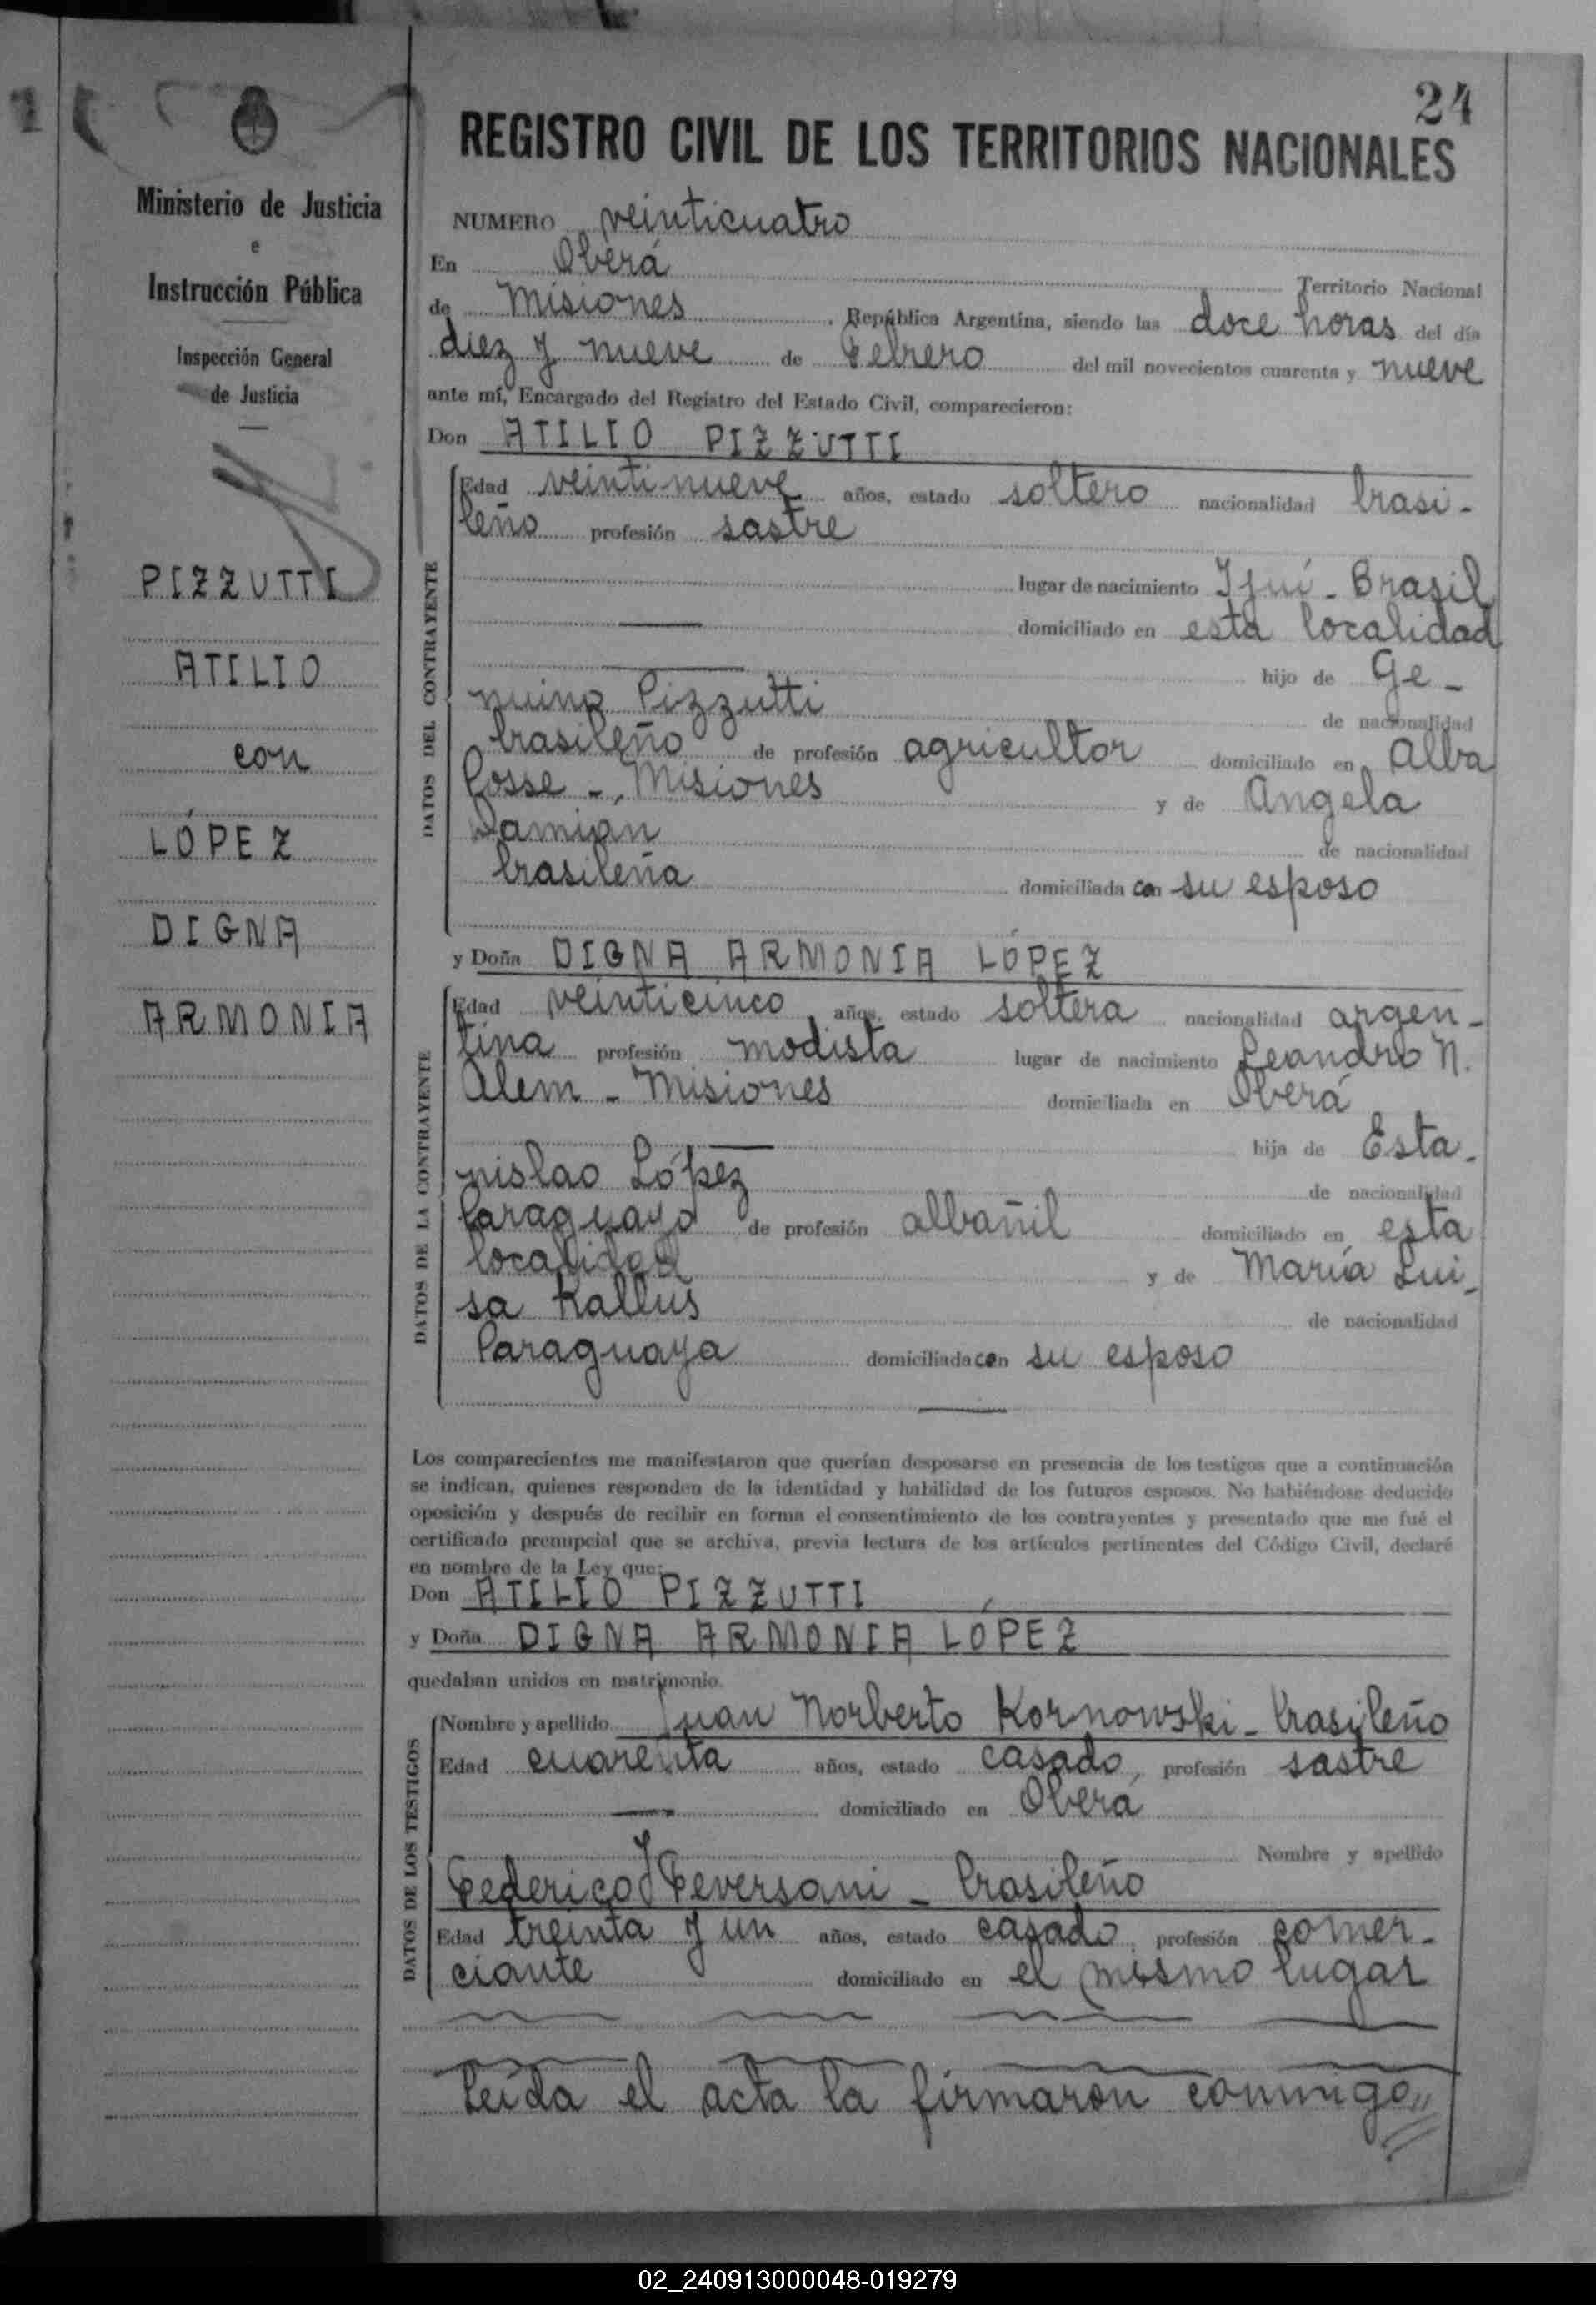 24
Ministerio de Justicia
e
Instrucción Pública
Inspección General
de Justicia
PIZZUTTI
ATILIO
con
LÓPEZ
DIGNA
ARMONIA
REGISTRO CIVIL DE LOS TERRITORIOS NACIONALES
NUMERO veinticuatro
En Oberá Territorio Nacional
de Misiones República Argentina, siendo las doce horas del día
diez y nueve de Febrero del mil novecientos cuarenta y nueve
ante mí, Encargado del Registro del Estado Civil, comparecieron:
Don ATILIO PIZZUTTI
DATOS DEL CONTRAYENTE
Edad veintinueve años, estado soltero nacionalidad brasi-
leño profesión sastre
lugar de nacimiento Ijuí - Brasil
domiciliado en esta localidad
hijo de Ge-
nuino Pizzutti de nacionalidad
brasileño de profesión agricultor domiciliado en Alba
Posse -, Misiones y de Angela
Damian de nacionalidad
brasileña domiciliada con su esposo
y Doña DIGNA ARMONIA LÓPEZ
DATOS DE LA CONTRAYENTE
Edad veinticinco años, estado soltera nacionalidad argen-
tina profesión modista lugar de nacimiento Leandro N.
Alem - Misiones domiciliada en Oberá
hija de Esta-
nislao López de nacionalidad
Paraguayo de profesión albañil domiciliado en esta
localidad y de María Lui-
sa Kallus de nacionalidad
Paraguaya domiciliada con su esposo
Los comparecientes me manifestaron que querían desposarse en presencia de los testigos que a continuación
se indican, quienes responden de la identidad y habilidad de los futuros esposos. No habiéndose deducido
oposición y después de recibir en forma el consentimiento de los contrayentes y presentado que me fué el
certificado prenupcial que se archiva, previa lectura de los artículos pertinentes del Código Civil, declaré
en nombre de la Ley que:
Don ATILIO PIZZUTTI
y Doña DIGNA ARMONIA LÓPEZ
quedaban unidos en matrimonio.
DATOS DE LOS TESTIGOS
Nombre y apellido Juan Norberto Kornowski - brasileño
Edad cuarenta años, estado casado, profesión sastre
domiciliado en Oberá
y Nombre y apellido
Federico Feversani - brasileño
Edad treinta y un años, estado casado, profesión comer-
ciante domiciliado en el mismo lugar
Leída el acta la firmaron conmigo
02_240913000048-019279